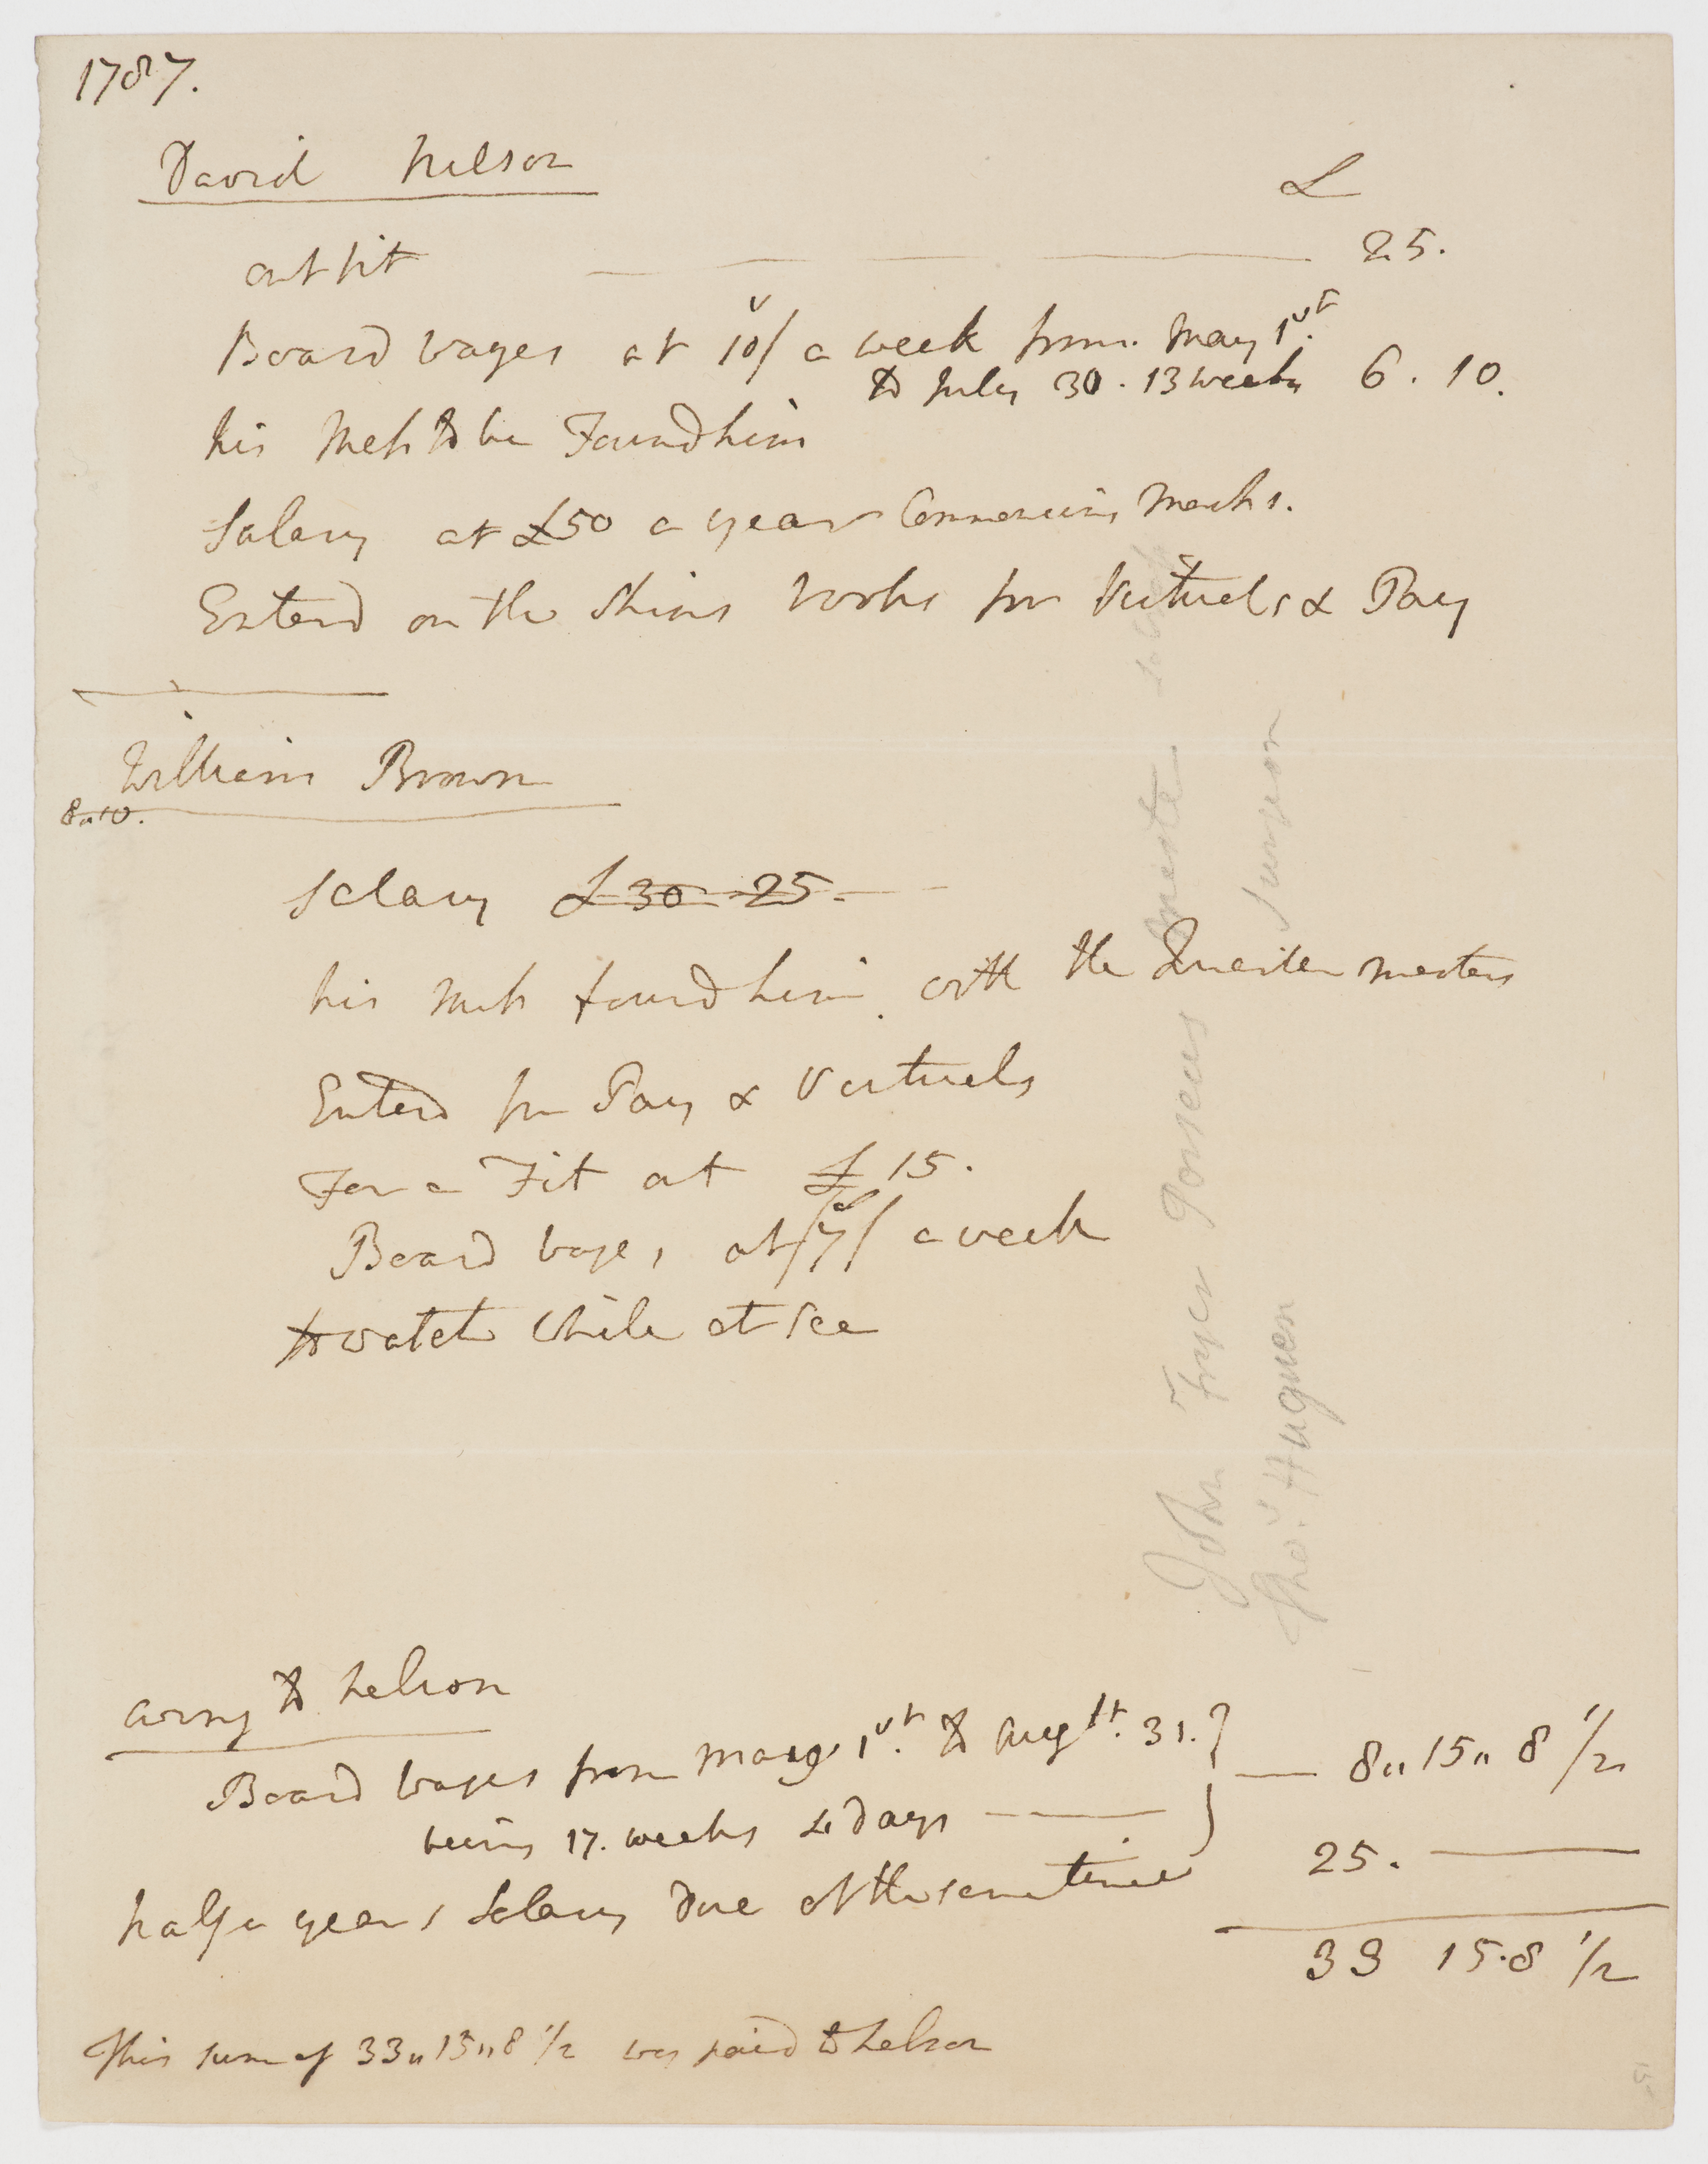 1787.
David Nelson
£
outfit 25.
Board wages at 10/ a week from May 1st.
to July 30. 13 weeks 6. 10.
his Mess to be Found him
Salary at £50 a year Commencing
Enterd on the Ships books for Victuals & Pay
William Brown
8..10.
Salary £30 25.
his Mess found him with the Quarter masters
Enterd for Pay & Victuals
For a Fit at £15.
Board wages at /7/ a week
to watch while at sea
owing to Nelson
Board wages from May 1st. to Augst. 31.} 8,, 15,, 8 1/2
being 17. weeks 4 days
half a years Salary due at the same time 25.
33 15.8 1/2
This sum of 33,, 15,, 8 1/2 was paid to Nelson
John Fryer Master
Thos. Huggan Surgeon